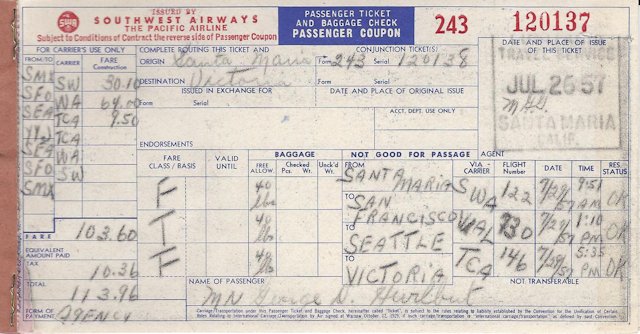 ISSUED BY
SWA
SOUTHWEST AIRWAYS
THE PACIFIC AIRLINE
Subject to Conditions of Contract the reverse side of Passenger Coupon
PASSENGER TICKET
AND BAGGAGE CHECK
PASSENGER COUPON
243 120137
FOR CARRIER'S USE ONLY
FROM/TO FARE
Construction
SMX
SFO SW 30.10
SEA WA 64.00
YYJ TCA 9.50
SEA TCA
SFO WA
SMX SW
FARE 103.60
EQUIVALENT
AMOUNT PAID
TAX 10.36
TOTAL 113.96
FORM OF
PAYMENT AGENCY
COMPLETE ROUTING THIS TICKET AND CONJUNCTION TICKET(S)
ORIGIN Santa Maria Form 243 Serial 120138
DESTINATION Victoria Form Serial
ISSUED IN EXCHANGE FOR DATE AND PLACE OF ORIGINAL ISSUE
Form Serial
ACCT. DEPT. USE ONLY
ENDORSEMENTS
DATE AND PLACE OF ISSUE
OF THIS TICKET
JUL 26 57
SANTA MARIA
AGENT
FARE
CLASS / BASIS
VALID
UNTIL
BAGGAGE
FREE
ALLOW.
Checked
Pcs. Wt.
Unck'd
Wt.
NOT GOOD FOR PASSAGE
VIA-
CARRIER
FLIGHT
Number
DATE TIME RES.
STATUS
F 40 lbs FROM SANTA MARIA SWA 122 7/29/57 9:51 AM OK
T 40 lbs TO SAN FRANCISCO WAL 730 7/29/57 1:10 PM OK
F 40 lbs TO SEATTLE TCA 146 7/29/57 5:35 PM OK
TO VICTORIA
NOT TRANSFERABLE
NAME OF PASSENGER
MR George D. Hurlbut
Carriage/Transportation under this Passenger Ticket and Baggage Check, hereinafter called "ticket", is subject to the rules relating to liability established by the Convention for the Unification of Certain
Rules Relating to International Carriage/Transportation by Air signed at Warsaw October 12, 1929, if such carriage/transportation is "international carriage/transportation" as defined by said Convention.